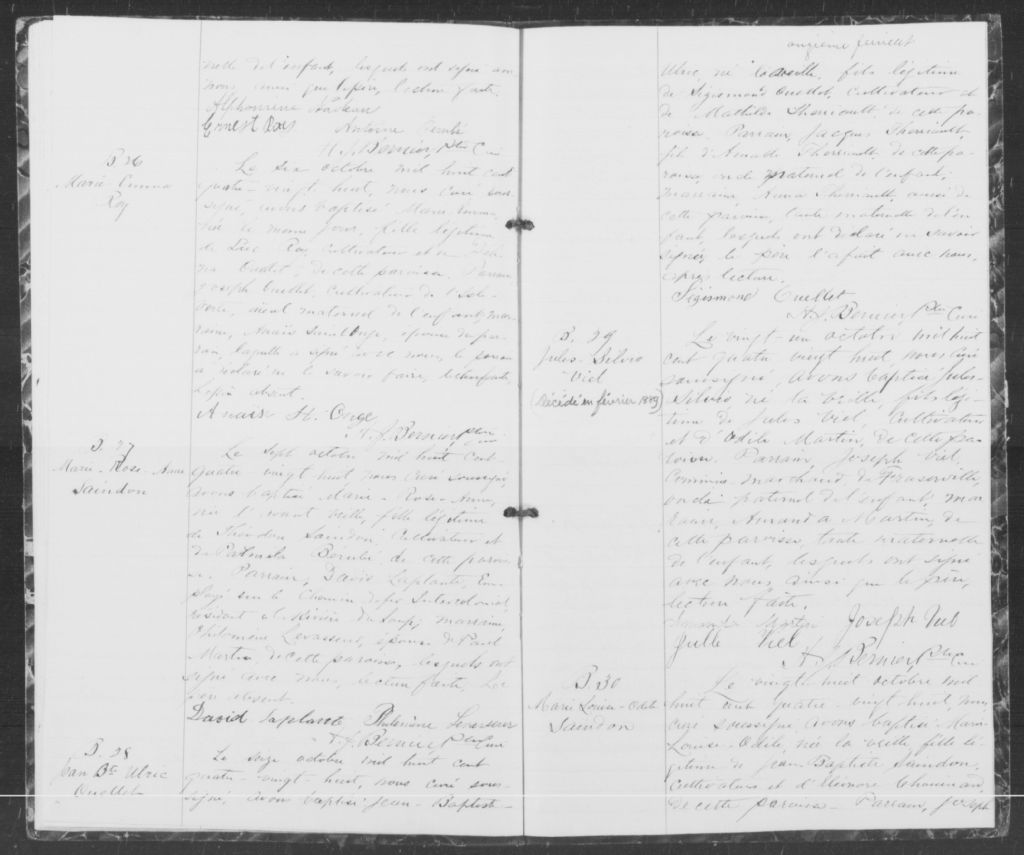 nelle de l'enfant, lesquels ont signé avec
nous, ainsi que le père, lecture faite.
Alphonsine
Ernest Roy Antoine Bérubé
H. J. Bernier, Ptre Curé
B. 26
Marie Emma
Roy
Le six octobre mil huit cent
quatre-vingt huit, nous curé sous-
signé, avons baptisé Marie Emma
née le même jour, fille légitime
de Luc Roy, cultivateur et de
Ouellet, de cette paroisse. Parrain,
Joseph Ouellet, cultivateur de l'Isle-
Verte, aieul maternel de l'enfant, mar-
raine, Anaïs St. Onge, épouse du par-
rain, laquelle a signé avec nous, le parrain
a déclaré ne le savoir faire, lecture faite,
le père absent.
Anais St. Onge
H. J. Bernier Ptre
Curé
B. 27
Marie-Rose-Anna
Saindon
Le sept octobre mil huit cent
quatre vingt huit, nous curé soussigné
avons baptisé Marie-Rose-Anna,
née l'avant veille, fille légitime
de Théodon Saindon, cultivateur et
de Bérubé de cette parois-
se. Parrain, David Laplante, Em-
ployé sur le Chemin de fer Intercolonial,
résidant à la Rivière du Loup; marraine,
Philomène Levasseur, épouse de Paul
Martin, de cette paroisse, lesquels ont
signé avec nous, lecture faite. Le
père absent.
David Laplante Philomène Levasseur
H. J. Bernier Ptre Curé
B. 28
Jean Bte Ulric
Ouellet
Le seize octobre mil huit cent
quatre-vingt-huit, nous curé sous-
signé, avons baptisé Jean-Baptiste-
onzième feuillet
Ulric, né la veille, fils légitime
de Sigismond Ouellet, cultivateur et
de Mathilde Therriault de cette pa-
roisse. Parrain, Jacques Therriault,
fils d'Amable Therriault, de cette pa-
roisse, oncle maternel de l'enfant;
marraine, Anna Therriault, aussi de
cette paroisse, tante maternelle de l'en-
fant, lesquels ont déclaré ne savoir
signer, le père l'a fait avec nous,
après lecture.
Sigismond Ouellet
H. J. Bernier Ptre Curé
B. 29
Jules-Silvio
Viel
(décédé en février 1889)
Le vingt-un octobre mil huit
cent quatre vingt huit nous curé
soussigné, avons baptisé Jules-
Silvio né la veille, fils légi-
time de Jules Viel, cultivateur
et d'Odile Martin, de cette pa-
roisse. Parrain, Joseph Viel,
Commis-marchand de Fraserville,
oncle paternel de l'enfant, mar-
raine, Amanda Martin, de
cette paroisse, tante maternelle
de l'enfant, lesquels ont signé
avec nous, ainsi que le père,
lecture faite.
Martin Joseph Viel
Jull Viel
H. J. Bernier Ptre Curé
B. 30
Marie Louise-Odile
Saindon
Le vingt huit octobre mil
huit cent quatre-vingt huit, nous
curé soussigné avons baptisé Marie-
Louise-Odile, née la veille, fille lé-
gitime de Jean Baptiste Saindon,
cultivateur et d'Eléonore Chouinard,
de cette paroisse. Parrain, Joseph